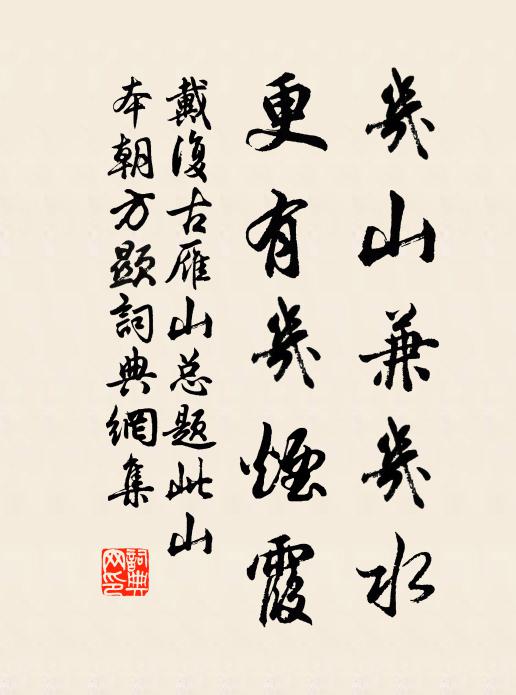 幾山兼幾水
更有幾煙霞
戴復古雁山总题此山
本朝方顯詞典網集
詞典网印